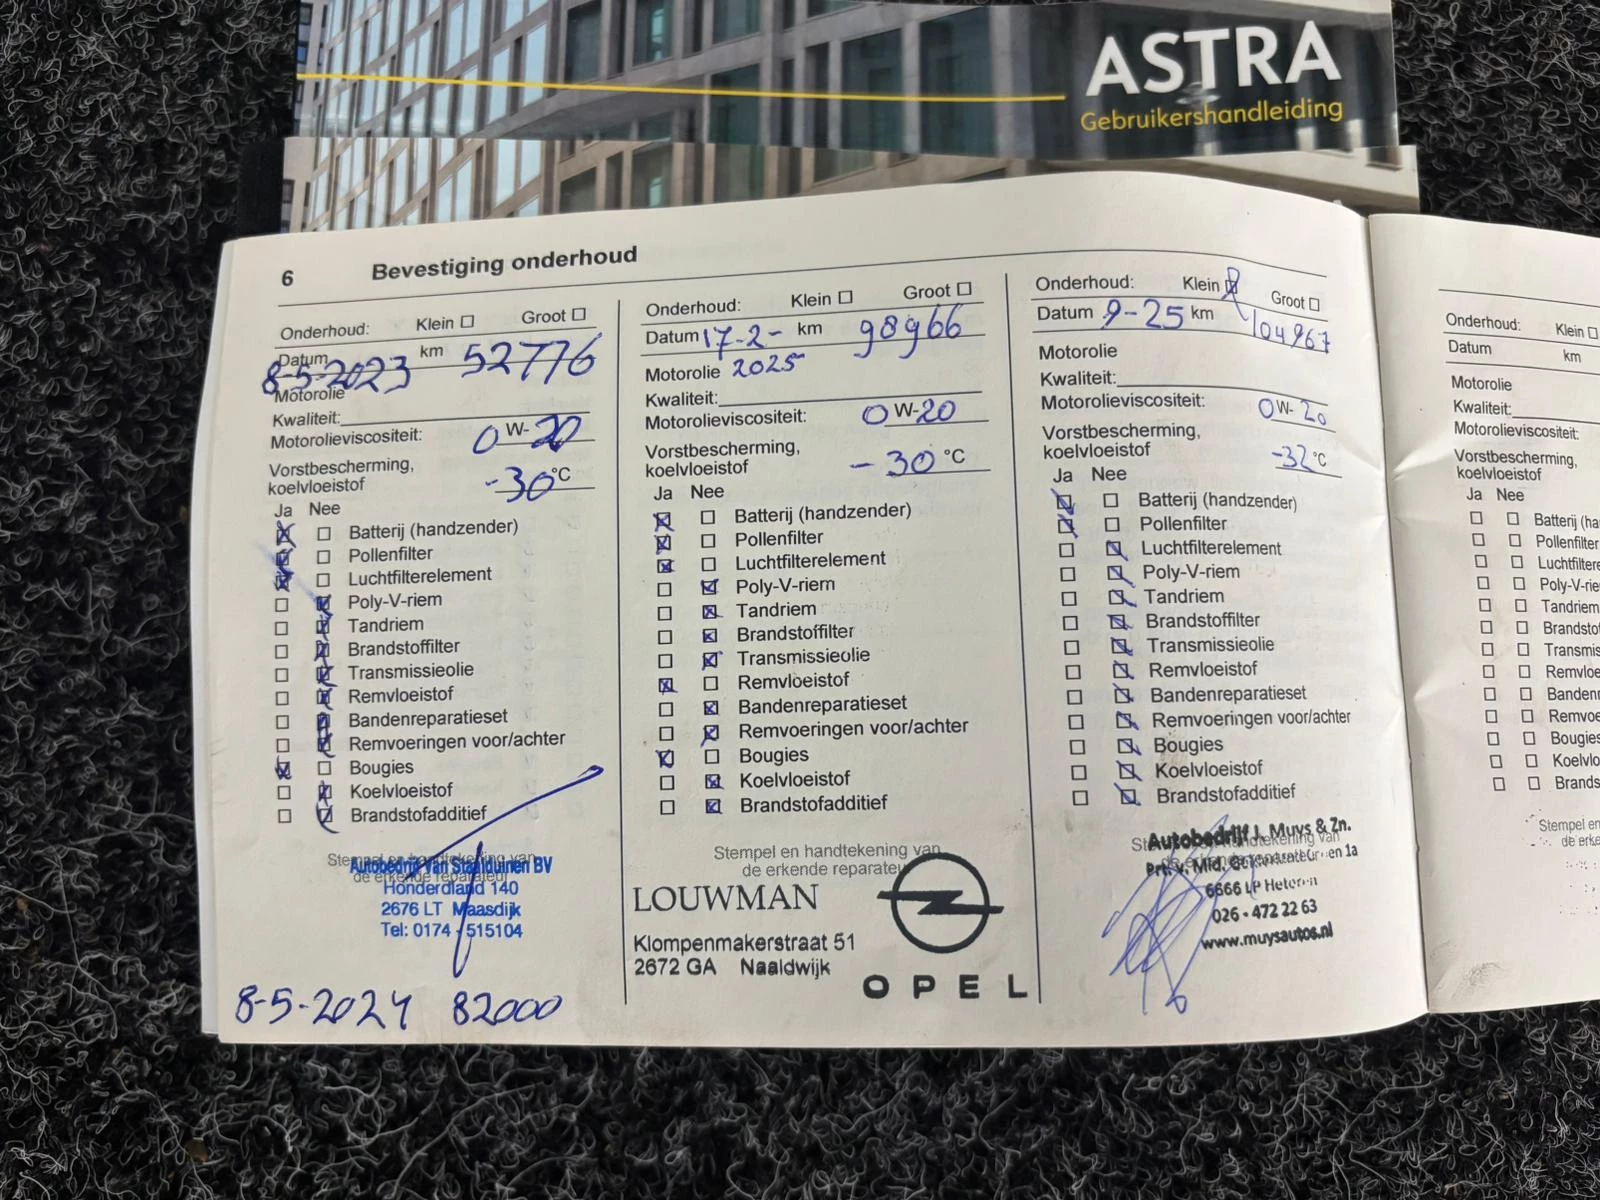 ASTRA
Gebruikershandleiding
6 Bevestiging onderhoud
Onderhoud: Klein Groot
Datum km 52776
8-5-2023
Motorolie
Kwaliteit:
Motorolieviscositeit: 0 W-20
Vorstbescherming,
koelvloeistof -30°C
Ja Nee
Batterij (handzender)
Pollenfilter
Luchtfilterelement
Poly-V-riem
Tandriem
Brandstoffilter
Transmissieolie
Remvloeistof
Bandenreparatieset
Remvoeringen voor/achter
Bougies
Koelvloeistof
Brandstofadditief
Stempel en handtekening van
de erkende reparateur
Autobedrijf van Staalduinen BV
Honderdland 140
2676 LT Maasdijk
Tel: 0174 - 515104
8-5-2024 82000
Onderhoud: Klein Groot
Datum 17-2- km 98966
2025
Motorolie
Kwaliteit:
Motorolieviscositeit: 0 W-20
Vorstbescherming,
koelvloeistof -30 °C
Ja Nee
Batterij (handzender)
Pollenfilter
Luchtfilterelement
Poly-V-riem
Tandriem
Brandstoffilter
Transmissieolie
Remvloeistof
Bandenreparatieset
Remvoeringen voor/achter
Bougies
Koelvloeistof
Brandstofadditief
Stempel en handtekening van
de erkende reparateur
LOUWMAN
Klompenmakerstraat 51
2672 GA Naaldwijk
OPEL
Onderhoud: Klein Groot
Datum 9-25 km 104967
Motorolie
Kwaliteit:
Motorolieviscositeit: 0 W- 20
Vorstbescherming,
koelvloeistof -32°C
Ja Nee
Batterij (handzender)
Pollenfilter
Luchtfilterelement
Poly-V-riem
Tandriem
Brandstoffilter
Transmissieolie
Remvloeistof
Bandenreparatieset
Remvoeringen voor/achter
Bougies
Koelvloeistof
Brandstofadditief
Autobedrijf J. Muys & Zn.
6666 LP Heteren
026 - 472 22 63
www.muysautos.nl
Onderhoud: Klein
Datum km
Motorolie
Kwaliteit:
Motorolieviscositeit:
Vorstbescherming,
koelvloeistof
Ja Nee
Batterij (ha
Pollenfilter
Luchtfiltere
Poly-V-rie
Tandriem
Brandsto
Transmis
Remvloei
Banden
Remvoe
Bougies
Koelvlo
Brands
Stempel en
de erke